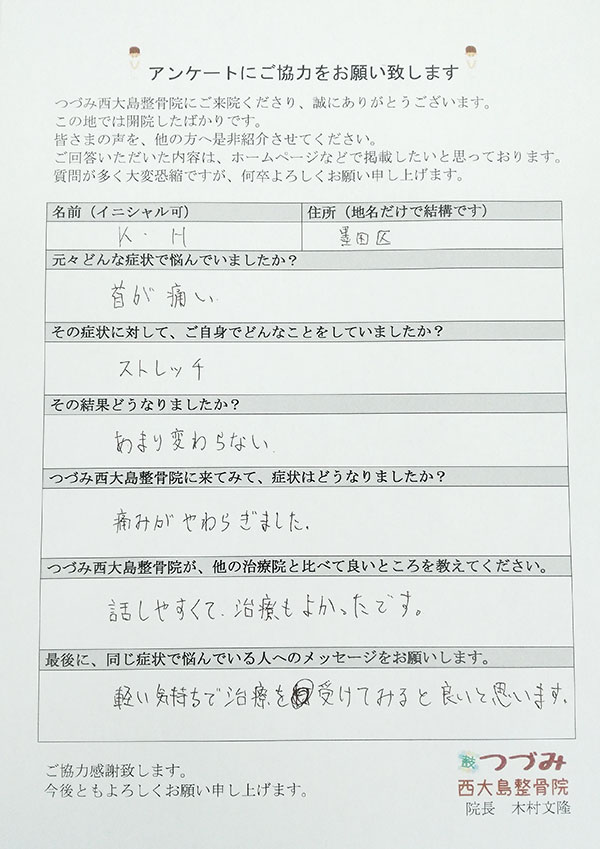 アンケートにご協力をお願い致します
つづみ西大島整骨院にご来院くださり、誠にありがとうございます。
この地では開院したばかりです。
皆さまの声を、他の方へ是非紹介させてください。
ご回答いただいた内容は、ホームページなどで掲載したいと思っております。
質問が多く大変恐縮ですが、何卒よろしくお願い申し上げます。
名前（イニシャル可） 住所（地名だけで結構です）
K・H 墨田区
元々どんな症状で悩んでいましたか？
首が痛い
その症状に対して、ご自身でどんなことをしていましたか？
ストレッチ
その結果どうなりましたか？
あまり変わらない
つづみ西大島整骨院に来てみて、症状はどうなりましたか？
痛みがやわらぎました。
つづみ西大島整骨院が、他の治療院と比べて良いところを教えてください。
話しやすくて、治療もよかったです。
最後に、同じ症状で悩んでいる人へのメッセージをお願いします。
軽い気持ちで治療を受けてみると良いと思います。
ご協力感謝致します。
今後ともよろしくお願い申し上げます。
つづみ
西大島整骨院
院長 木村文隆